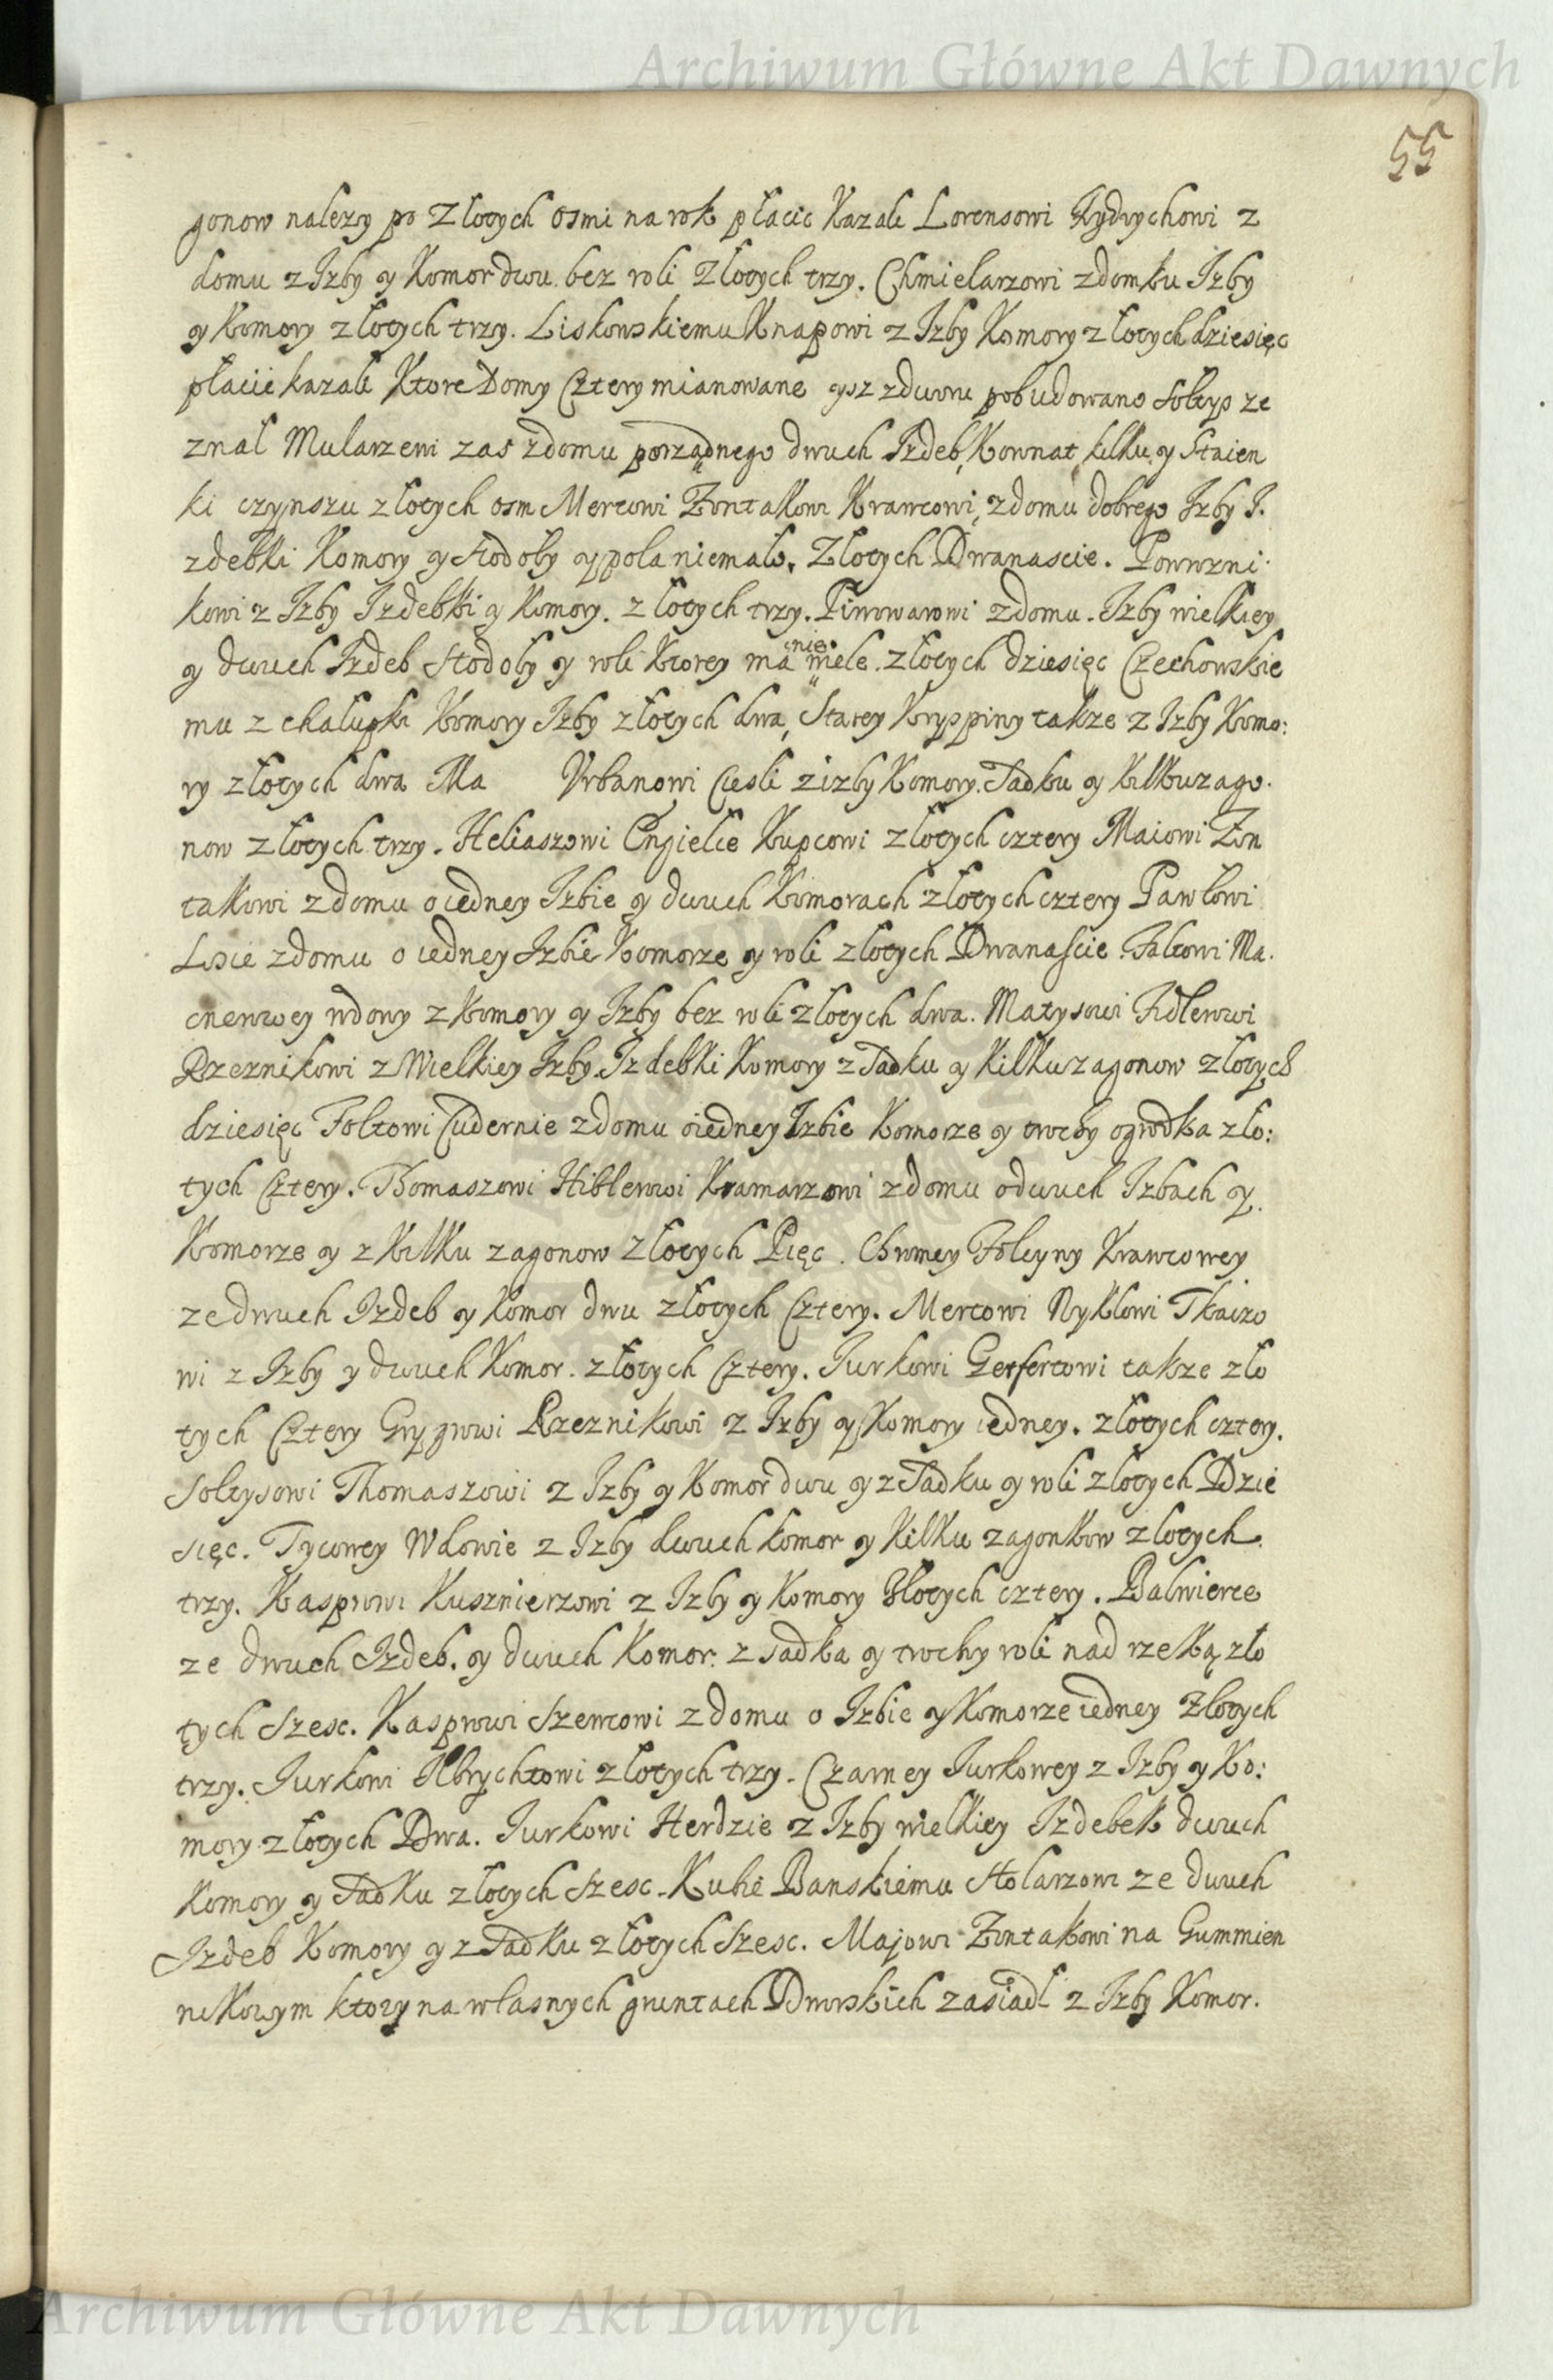 Archiwum Główne Akt Dawnych
55
gonow nalezy po Złotych osmi na rok płacic Kazali Lorensowi Frydrychowi z
domu z Izby y Komor dwu bez roli Złotych trzy. Chmielarzowi z domku Izby
y Komory złotych trzy. Liskowskiemu Knapowi z Izby Komory złotych dziesięc
płacic kazali Ktore Domy Cztery mianowane ysz z dwuru pobudowano Sołtys ze
znał Mularzewi zas z domu porządnego dwuch Izdeb, Kownat kilku y Staien
ki czynszu złotych osm Mertowi Zontakowi Krawcowi, z domu dobrego Izby I.
zdebki Komory y Stodoły y pola niemało, Złotych Dwanascie. Powrozni
kowi z Izby Izdebki y Komory. złotych trzy. Piwowarowi z domu. Izby wielkiey
y dwuch Izdeb Stodoły y roli Ktorey ma nie mele. złotych dziesięc Czechowskie
mu z chałupki Komory Izby złotych dwa, Starey Kryspiny takze z Izby Komo:
ry złotych dwa Ma Urbanowi Ciesli z izby Komory Sadku y Kilku zago.
now złotych trzy. Heliaszowi Engielce Kupcowi złotych cztery Maiowi Zon
takowi z domu o iedney Izbie y dwuch Komorach złotych cztery Pawłowi
Losie z domu o iedney Izbie Komorze y roli złotych Dwanascie. Falcowi Ma.
cnerowey wdowy z Komory y Izby bez roli złotych dwa. Matysowi Fidlerowi
Rzeznikowi z Wielkiey Izby Izdebki Komory z Sadku y Kilku zagonow złotych
dziesięc Foltowi Cudernie z domu o iedney Izbie Komorze y trochy ogrodka zło:
tych Cztery. Thomaszowi Hiblerowi Kramarzowi z domu o dwuch Izbach y.
Komorze y z Kilku zagonow złotych Pięc. Chromey Folcyny Krawcowey
ze dwuch Izdeb y Komor dwu złotych Cztery. Mertowi Nyklowi Tkaczo
wi z Izby y dwuch Komor. złotych Cztery. Jurkowi Gerfertowi takze zło
tych Cztery Grygrowi Rzeznikowi z Izby y Komory iedney. złotych cztery.
Sołtysowi Thomaszowi z Izby y Komor dwu y z Sadku y roli złotych Dzie
sięc. Tycowey Wdowie z Izby dwuch komor y Kilku zagonkow złotych.
trzy. Kasprowi Kusznierzowi z Izby y Komory Złotych cztery. Balwierce
ze dwuch Izdeb. y dwuch Komor. z sadka y trochy roli nad rzeką zło
tych Szesc. Kasprowi Szewcowi z domu o Izbie y Komorze iedney Złotych
trzy. Jurkowi Ilbrychtowi złotych trzy. Czarney Jurkowey z Izby y Ko:
mory złotych Dwa. Jurkowi Herdzie z Izby wielkiey Izdebek dwuch
Komory y Sadku złotych Szesc. Kubie Banskiemu Stolarzowi ze dwuch
Izdeb Komory y z Sadku złotych Szesc. Majowi Zontakowi na Gummien
nikowym ktory na własnych gruntach Dworskich zasiadł z Izby Komor.
Archiwum Główne Akt Dawnych